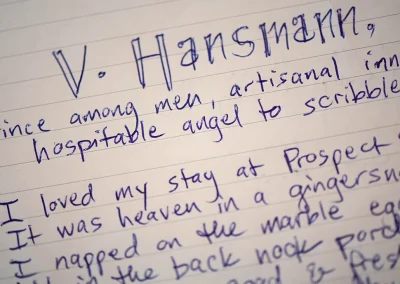 V. Hansmann,
ince among men, artisanal inn
hospitable angel to scribble
I loved my stay at Prospect
It was heaven in a gingersn
I napped on the marble eg
in the back nook porc
& fres